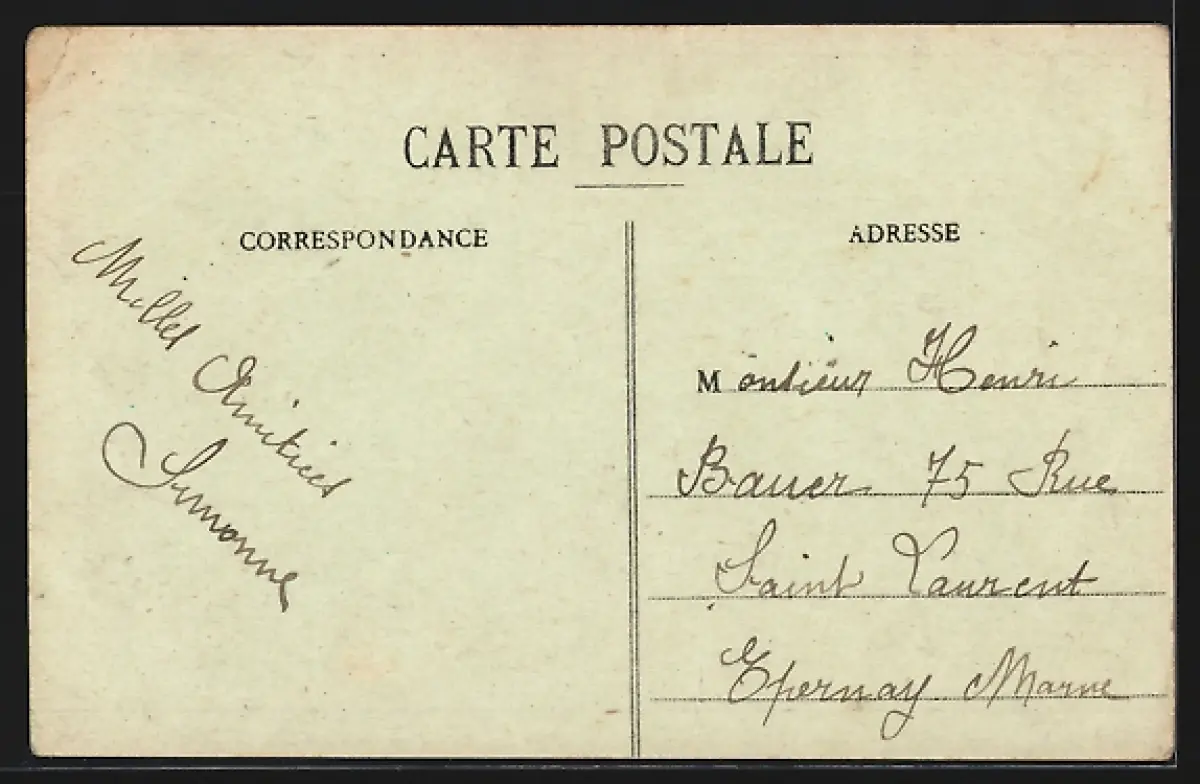 CARTE POSTALE
CORRESPONDANCE
ADRESSE
Milles Amitiées
Simonne
Monsieur Henri
Bauer 75 Rue
Saint Laurent
Epernay Marne